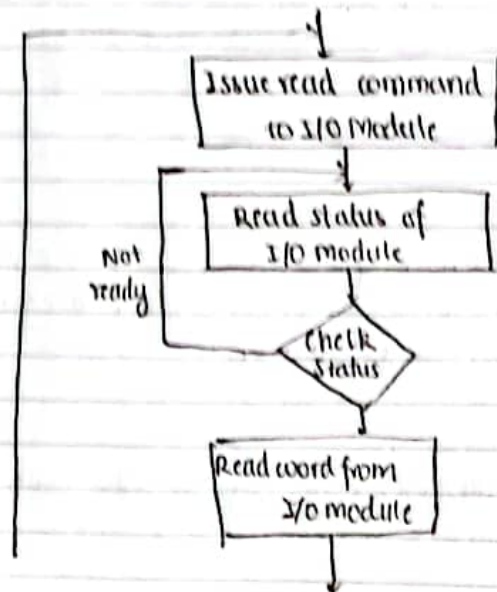 Issue read command
to I/O Module
Read status of
I/O module
Not
ready
Check
status
Read word from
I/O module